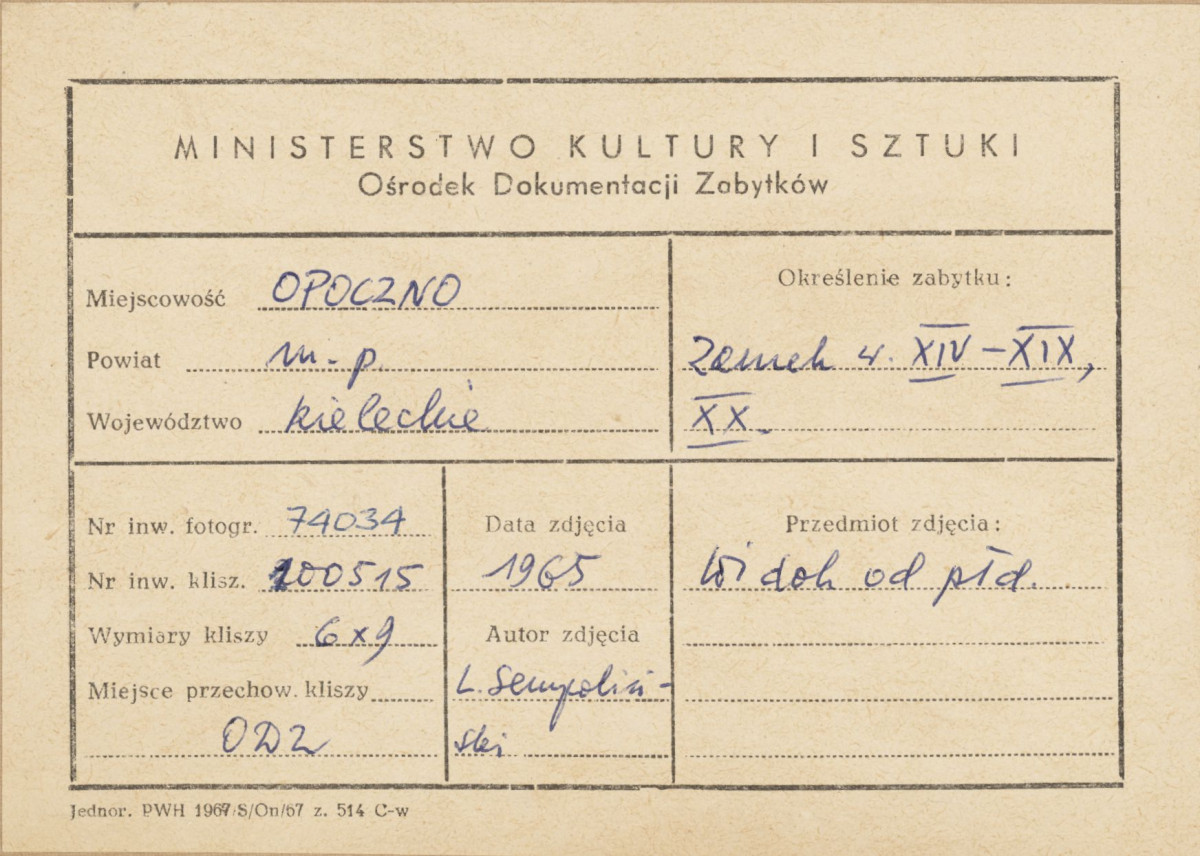 MINISTERSTWO KULTURY I SZTUKI
Ośrodek Dokumentacji Zabytków
Miejscowość OPOCZNO
Powiat m-p.
Województwo kieleckie
Określenie zabytku:
Zamek w. XIV – XIX,
XX.
Nr inw. fotogr. 74034
Nr inw. klisz. 200515
Wymiary kliszy 6x9
Miejsce przechow. kliszy
ODZ
Data zdjęcia
1965
Autor zdjęcia
L. Sempoliń-
ski
Przedmiot zdjęcia:
Widok od płd.
Jednor. PWH 1967 S/On/67 z. 514 C-w